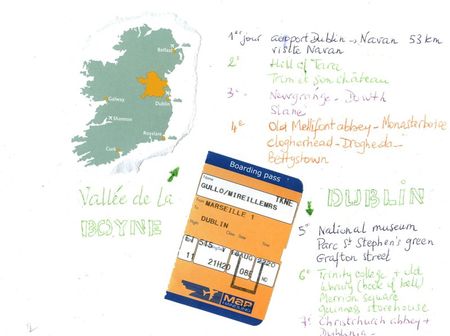 1er jour aéroport Dublin → Navan 53 km
visite Navan
2e Hill of Tara
Trim et son château
3e Newgrange - Dowth
Slane
4e Old Mellifont abbey - Monasterboice
Clogherhead - Drogheda -
Bettystown
Belfast
Galway
Dublin
Shannon
Rosslare
Cork
Vallée de la
BOYNE
Boarding pass
Name
GULLO/MIREILLEMRS
From
MARSEILLE 1
To
DUBLIN
11
21H20
G8E
MAP
DUBLIN
5e National museum
Parc St Stephen's green
Grafton street
6e Trinity college + old
library (book of kells)
Merrion square
Guinness storehouse
7e Christchurch abbey +